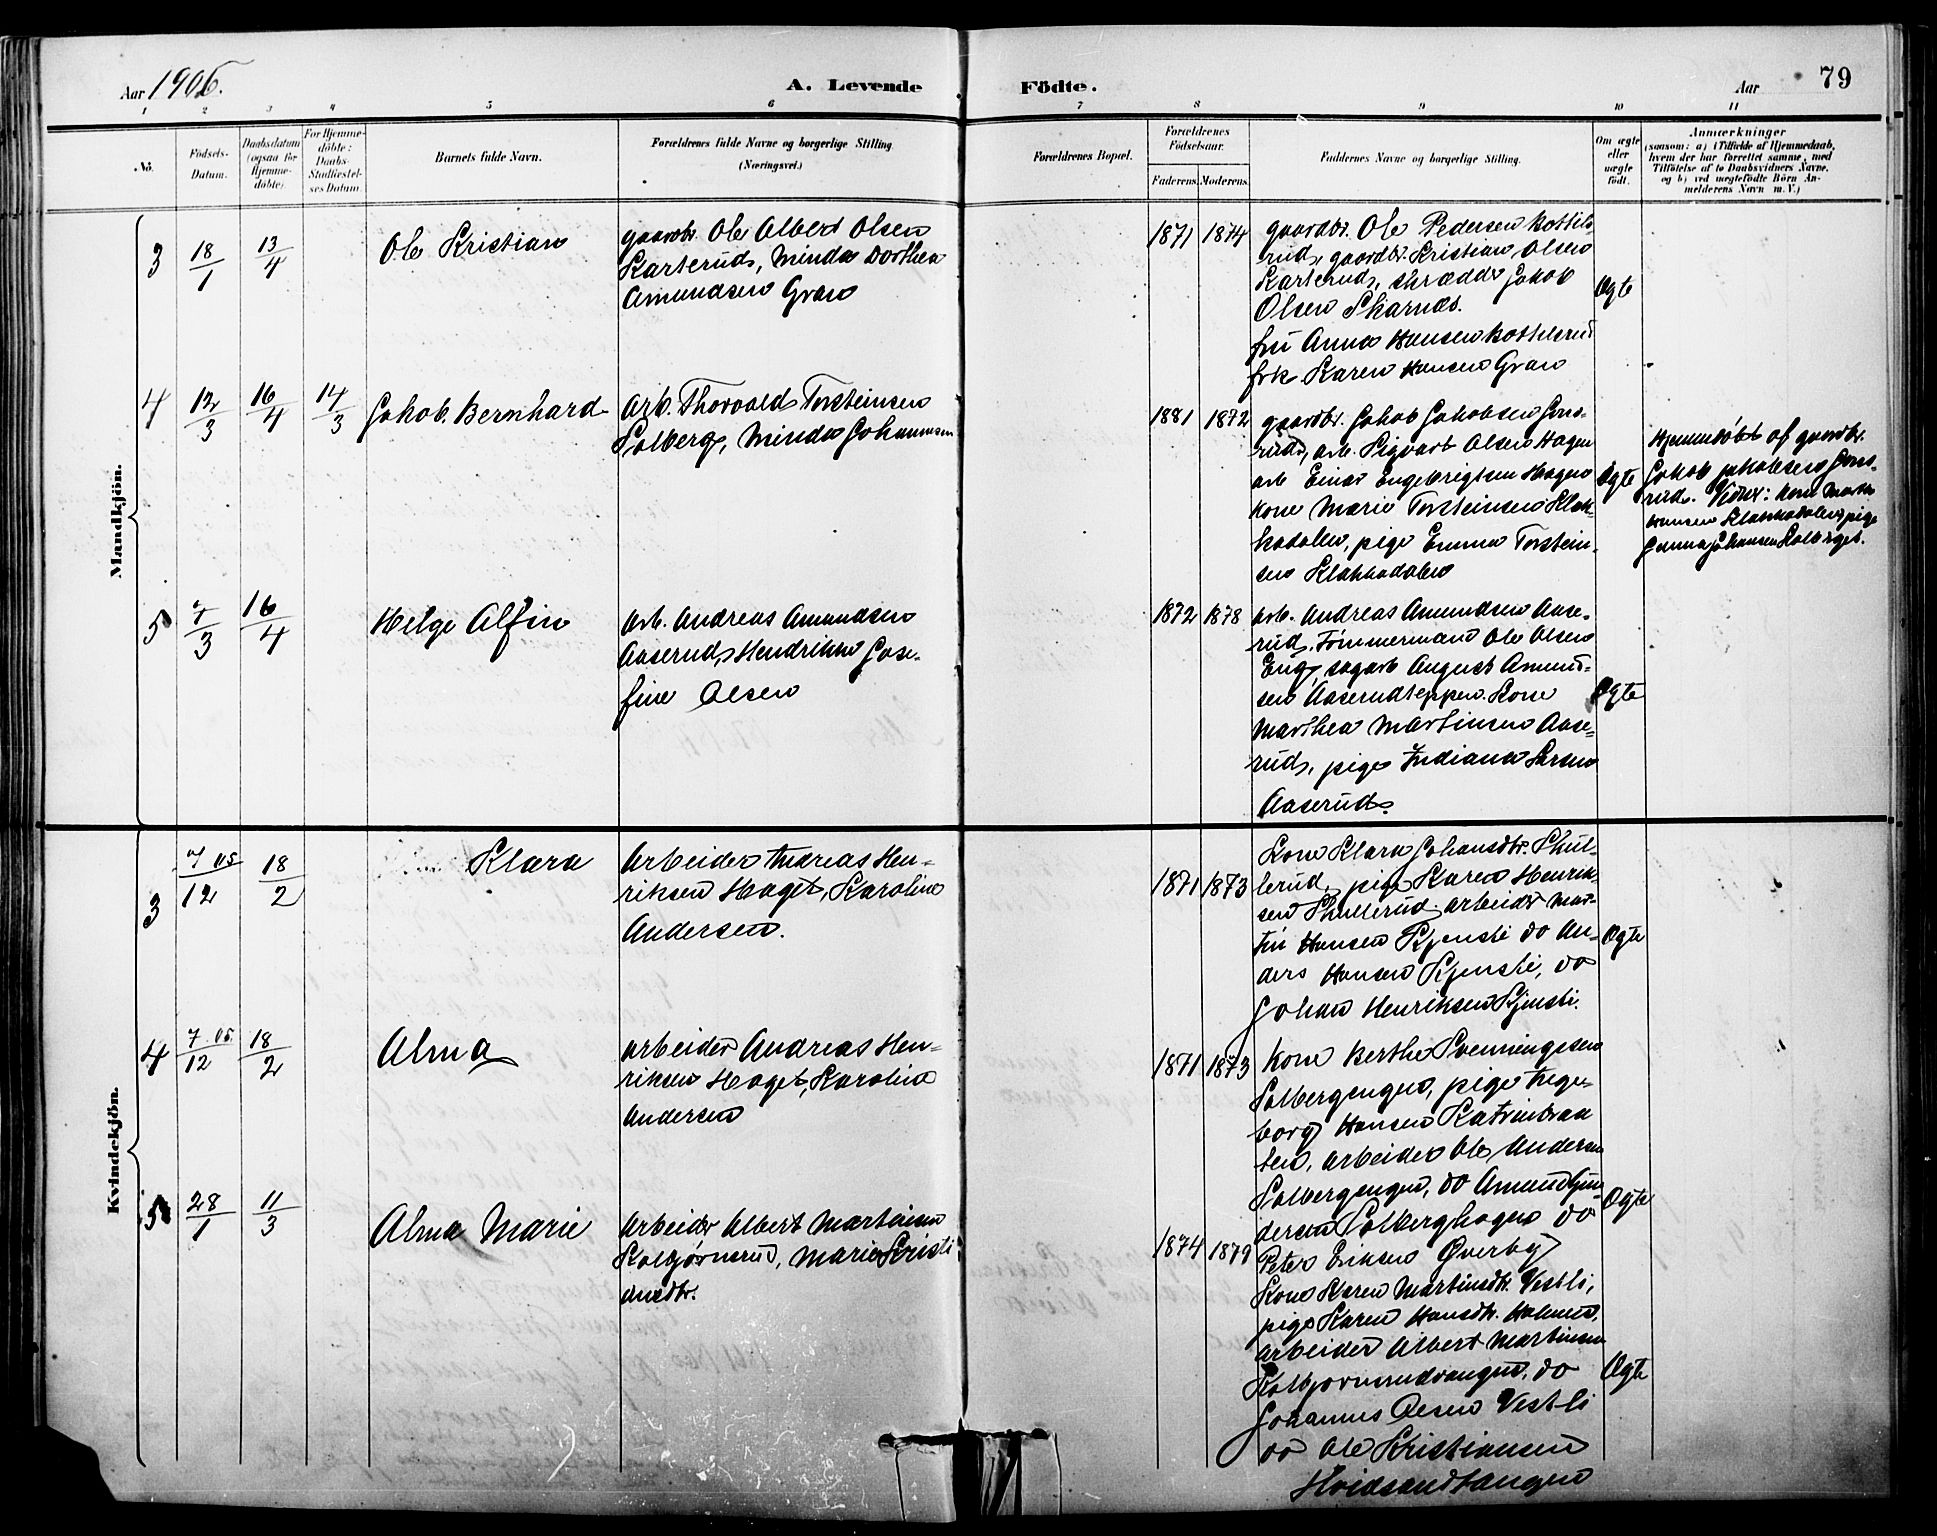 Aar 1906.
A. Levende
Födte.
Aar
79
1 2 3 4 5 6 7 8 9 10 11
No.
Födsels-
Datum.
Daabsdatum
(ogsaa for
Hjemme-
döbte).
For Hjemme-
döbte:
Daabs-
Stadfæstel-
ses Datum.
Barnets fulde Navn.
Forældrenes fulde Navne og borgerlige Stilling
(Næringsvei.)
Forældrenes Bopæl.
Forældrenes
Födselsaar.
Faderens. Moderens.
Faddernes Navne og borgerlige Stilling.
Om ægte
eller
uægte
födt.
Anmærkninger
(saasom: a) i Tilfælde af Hjemmedaab,
hvem der har forrettet samme, med
Tilföielse af to Daabsvidners Navne.
og b) ved uægtefödte Börn An-
melderens Navn m. V.)
Mandkjön.
3
18/1
13/4
Ole Kristian
gaardbr. Ole Albert Olsen
Karterud, Minda Dorthea
Amundsen Gran
1871 1874
gaardbr. Ole Pedersen Kottels-
rud, gaardbr. Kristian Olsen
Karterud, skrædder Jakob
Olsen Skarud.
fru Anna Hansen Kottelsrud
frk. Karen Hansen Gran
Ægte
4
12/3
16/4
14/3
Jakob Bernhard
Arb. Thorvald Torsteinsen
Solberg, Minda Johannesen
1881 1872
gaardbr. Jakob Jakobsen Gons-
rud, arb. Sigvart Olsen Hagen
arb Einar Engebrigtsen Hagen
kone Marie Torsteinsen Klak-
kadalen, pige Emma Torstein-
sen Klakkadalen
Ægte
Hjemmedøbt af gaardbr.
Jakob Jakobsen Gons-
rud. Vidner: kone Marth
Hansen Klakkadalen, pige
Johansen Solberget.
5
7/3
16/4
Helge Alfin
Arb. Andreas Amundsen
Aaserud, Hendrikke Jose-
fine Olsen
1872 1878
arb. Andreas Amundsen Aase-
rud, Tømmermand Ole Olsen
Eng, sagarb August Amund-
sen Aaserudteppen. Kone
Marthea Martinsen Aase-
rud, pige Indiana Larsen
Aaserud.
Ægte
Kvindekjön.
3
7/12 05
18/2
Klara
Arbeider Andreas Hen-
riksen Haget, Karoline
Andersen.
1871 1873
Kone Klara Johansdtr. Skul-
lerud, pige Karen Henrik-
sen Skullerud, arbeider Mar-
tin Hansen Kjensli do An-
ders Hansen Kjensli, do
Johan Henriksen Kjensli.
Ægte
4
7/12 05.
18/2
Alma
arbeider Andreas Hen-
riksen Haget, Karoline
Andersen
1871 1873
Kone Berthe Svenningsen
Solbergengen, pige Inge-
borg Hansen Katrinbraa
ten, arbeider Ole Andersen
Solbergengen, do Amund Gun
dersen Solberghagen do
Peter Eriksen Øverby
Ægte
5
28/1
11/3
Alma Marie
Arbeider Albert Martinsen
Kolbjørnsrud, Marie Kristi
ansdtr.
1874 1879
Kone Karen Martinsdtr. Vestli,
pige Karen Hansdtr. Holmen,
arbeider Albert Martinsen
Kolbjørnsrudvangen, do
Johannes Olsen Vestli
do Ole Kristiansen
Hvidsandtangen
Ægte